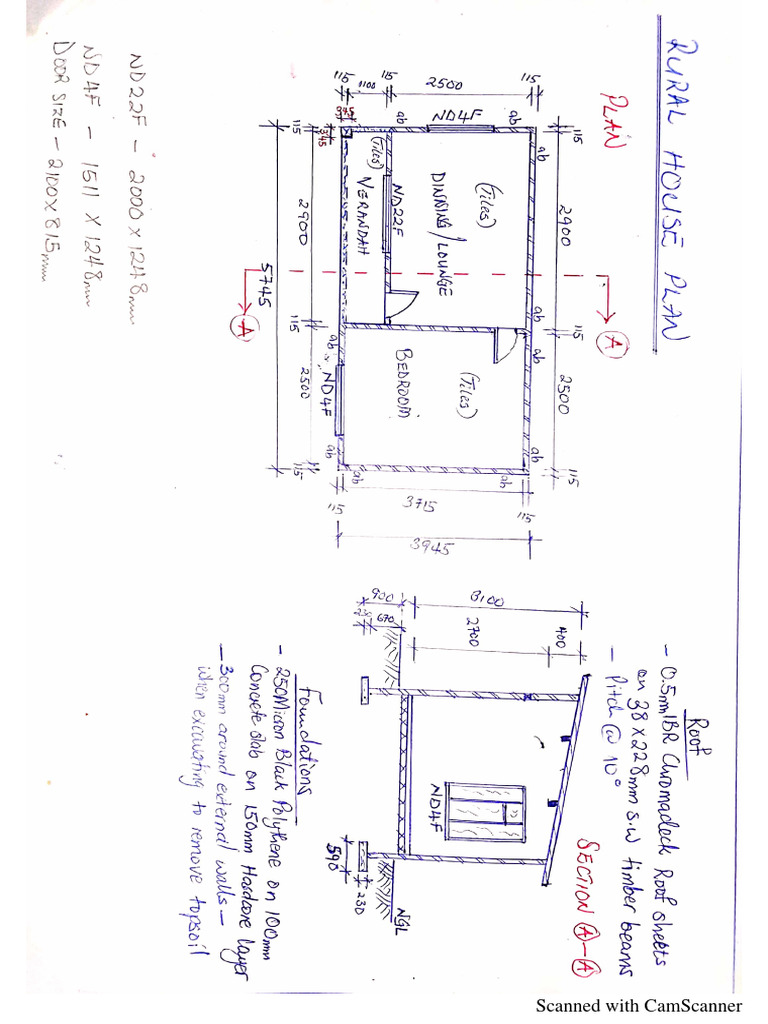 RURAL HOUSE PLAN
PLAN
115
2500
115
1100
115
345
345
ab
ND4F
ab
115
ab
2900
ab
115
ab
2500
ab
115
(Tiles)
DINNING/LOUNGE
ND22F
(Tiles)
VERANDAH
BEDROOM
(Tiles)
115
2900
115
ab
ND4F
2500
ab
115
ab
5745
A
A
3715
115
115
3945
ND22F - 2000 x 1248mm
ND4F - 1511 x 1248mm
DOOR SIZE - 2100x815mm
Roof
- 0.5mm IBR Chromadeck Roof sheets
on 38 x 228mm s.w timber beams
- Pitch @ 10°
SECTION A-A
3100
900
400
2700
670
230
ND4F
NGL
590
230
Foundations
- 250Micron Black Polythene on 100mm
Concrete slab on 150mm Hardcore layer
- 300mm around external walls -
when excavating to remove topsoil
Scanned with CamScanner